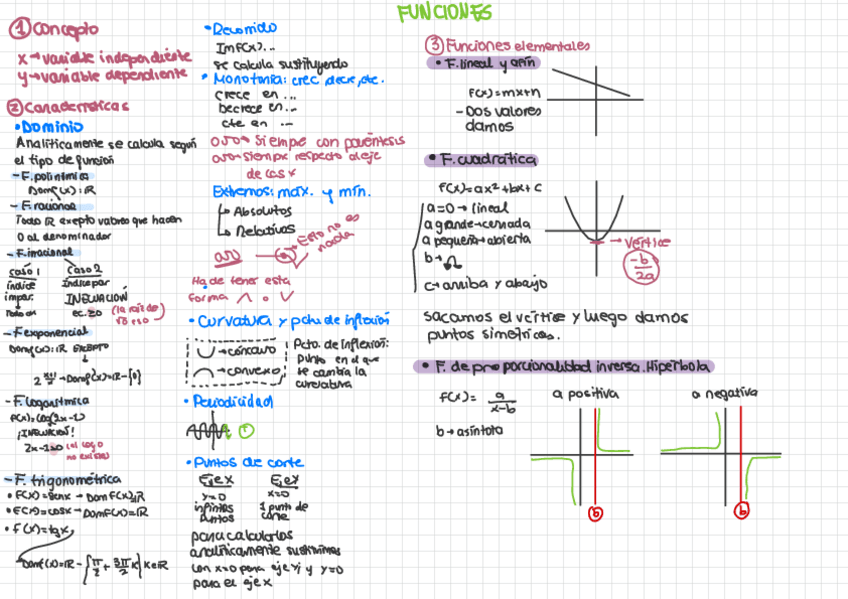 FUNCIONES
① Concepto
x → variable independiente
y → variable dependiente
② Características
• Dominio
Analíticamente se calcula según
el tipo de función
- F. polinómica
Domf(x): ℝ
- F. racional
Todo ℝ exepto valores que hacen
0 al denominador
- F. irracional
caso 1
índice
impar.
Todo ℝ
caso 2
Índice par
INECUACIÓN
ec. ≥ 0
(la raíz de
- F. exponencial
Domf(x): ℝ EXCEPTO
→ Domf(x) = ℝ - {0}
- F. logarítmica
f(x) = log(2x-1)
¡INECUACIÓN!
2x-1>0
(el log 0
no existe)
- F. trigonométrica
• F(x) = senx → Dom f(x) = ℝ
• F(x) = cosx → Dom f(x) = ℝ
• f(x) = tgx
Domf(x) = ℝ - {π/2 + 3π/2 K} K∈ℝ
• Recorrido
Im f(x)...
se calcula sustituyendo
• Monotonía: crec, decre, cte.
Crece en ...
Decrece en ...
cte en ...
ojo → Siempre con paréntesis
ojo → siempre respecto al eje
de las x
Extremos: máx. y mín.
→ Absolutos
→ Relativos
ojo
→ Esto no es
nada
Ha de tener esta
forma ∧ o ∨
• Curvatura y pcto. de inflexión
∪ → cóncavo
∩ → convexo
Pcto. de Inflexión:
Punto en el que
se cambia la
curvatura
• Periodicidad
• Puntos de corte
Eje x
y=0
infinitos
puntos
Eje y
x=0
1 punto de
corte
para calcularlos
analíticamente sustituimos
con x=0 para eje y y y=0
para el eje x
③ Funciones elementales
• F. lineal y afín
f(x) = mx+n
- Dos valores
damos
• F. cuadrática
f(x) = ax² + bx + c
a=0 → lineal
a grande → cerrada
a pequeña → abierta
b →
c → arriba y abajo
→ vértice
-b/2a
Sacamos el vértice y luego damos
puntos simétricos.
• F. de proporcionalidad inversa. Hipérbola
f(x) = a/x-b
b → asíntota
a positiva
b
a negativa
b